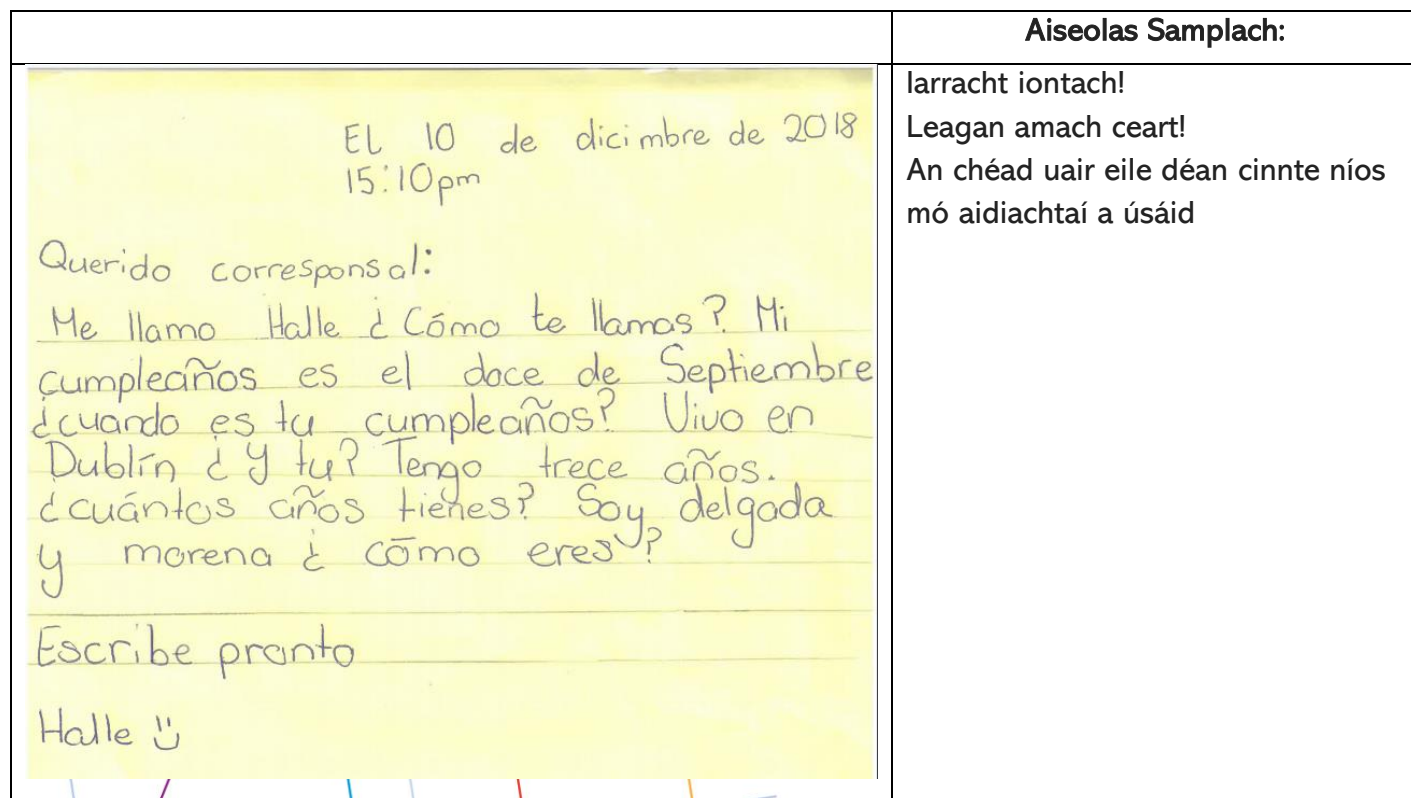 Aiseolas Samplach:
El 10 de dicimbre de 2018
15:10pm
Querido corresponsal:
Me llamo Halle ¿Cómo te llamas? Mi
cumpleaños es el doce de Septiembre
¿cuando es tu cumpleaños? Vivo en
Dublín ¿Y tu? Tengo trece años.
¿cuántos años tienes? Soy delgada
y morena ¿cōmo eres?
Escribe pronto
Halle
Iarracht iontach!
Leagan amach ceart!
An chéad uair eile déan cinnte níos
mó aidiachtaí a úsáid